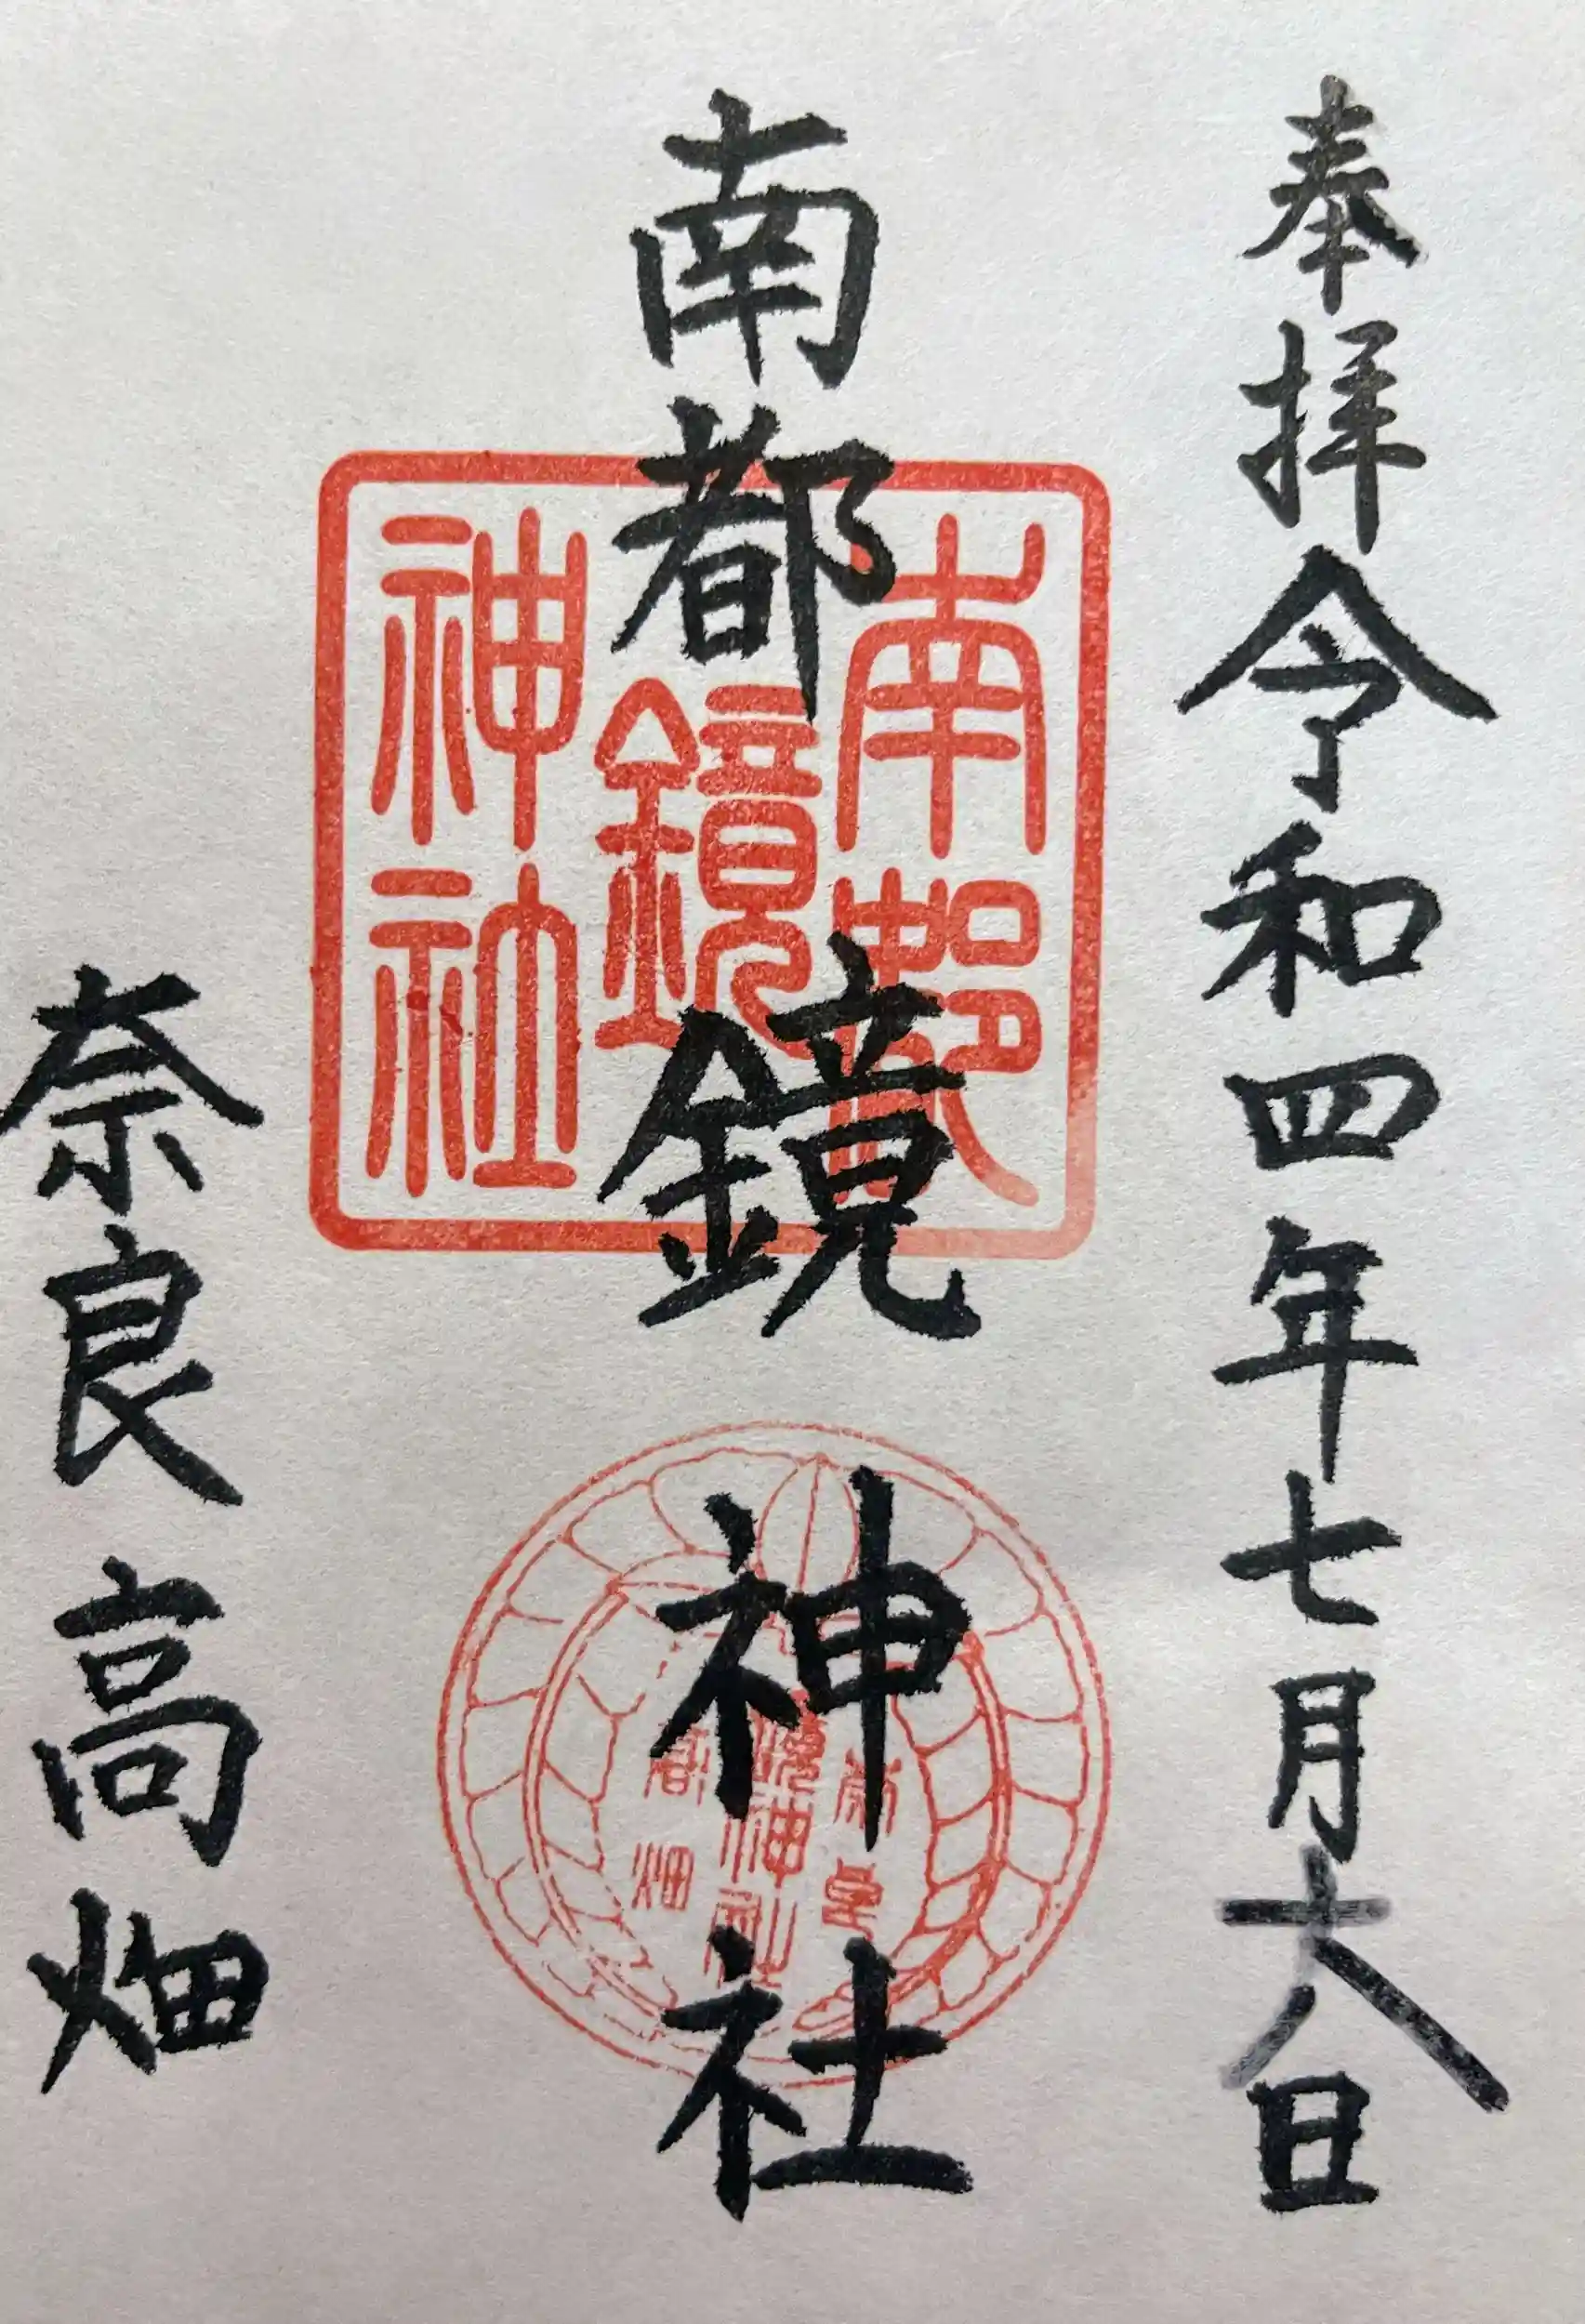 奉拝令和四年七月十八日
南都鏡神社
奈良高畑
南都
鏡
神社
鏡神社
高畑